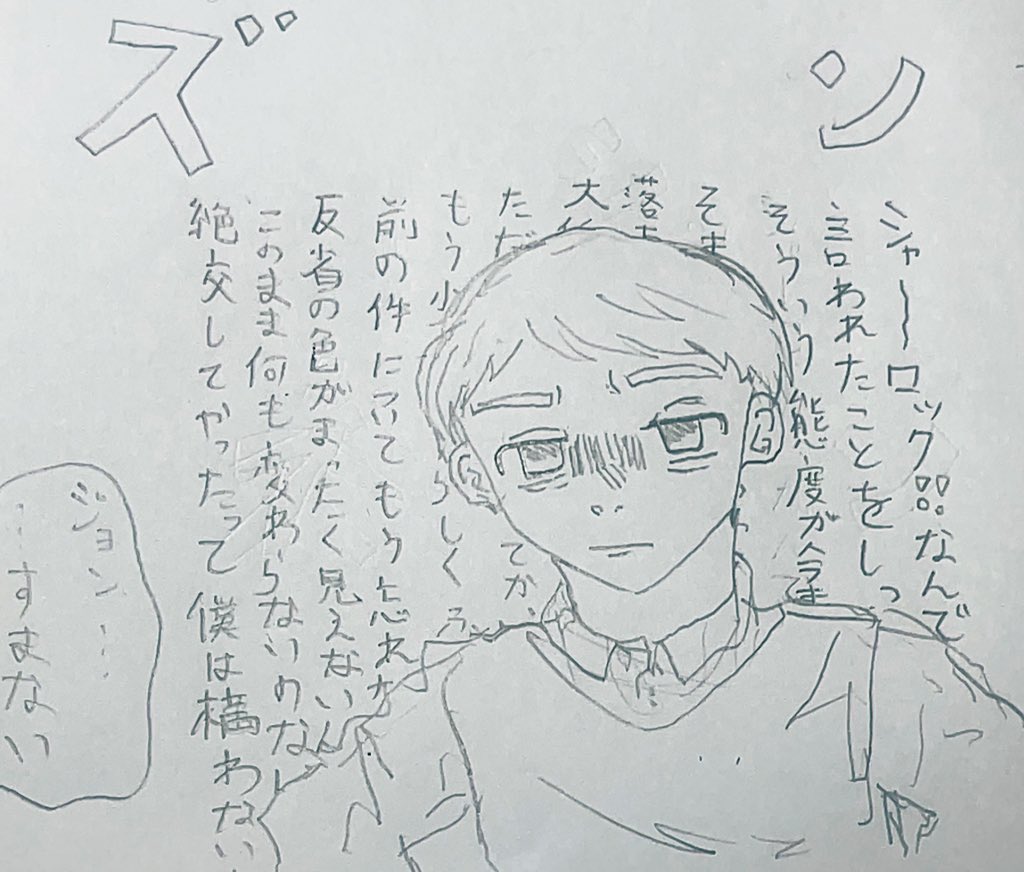 ズン
シャーロック!!なんで
言われたことをしっ
そういう態度が今ま
そま
落ち
大
ただ
てか、
もう少
らしく
前の件についてもう忘れた
反省の色がまったく見えないん
このまま何も変わらないのなら
絶交してやったって僕は構わない
ジョン……
…すまない